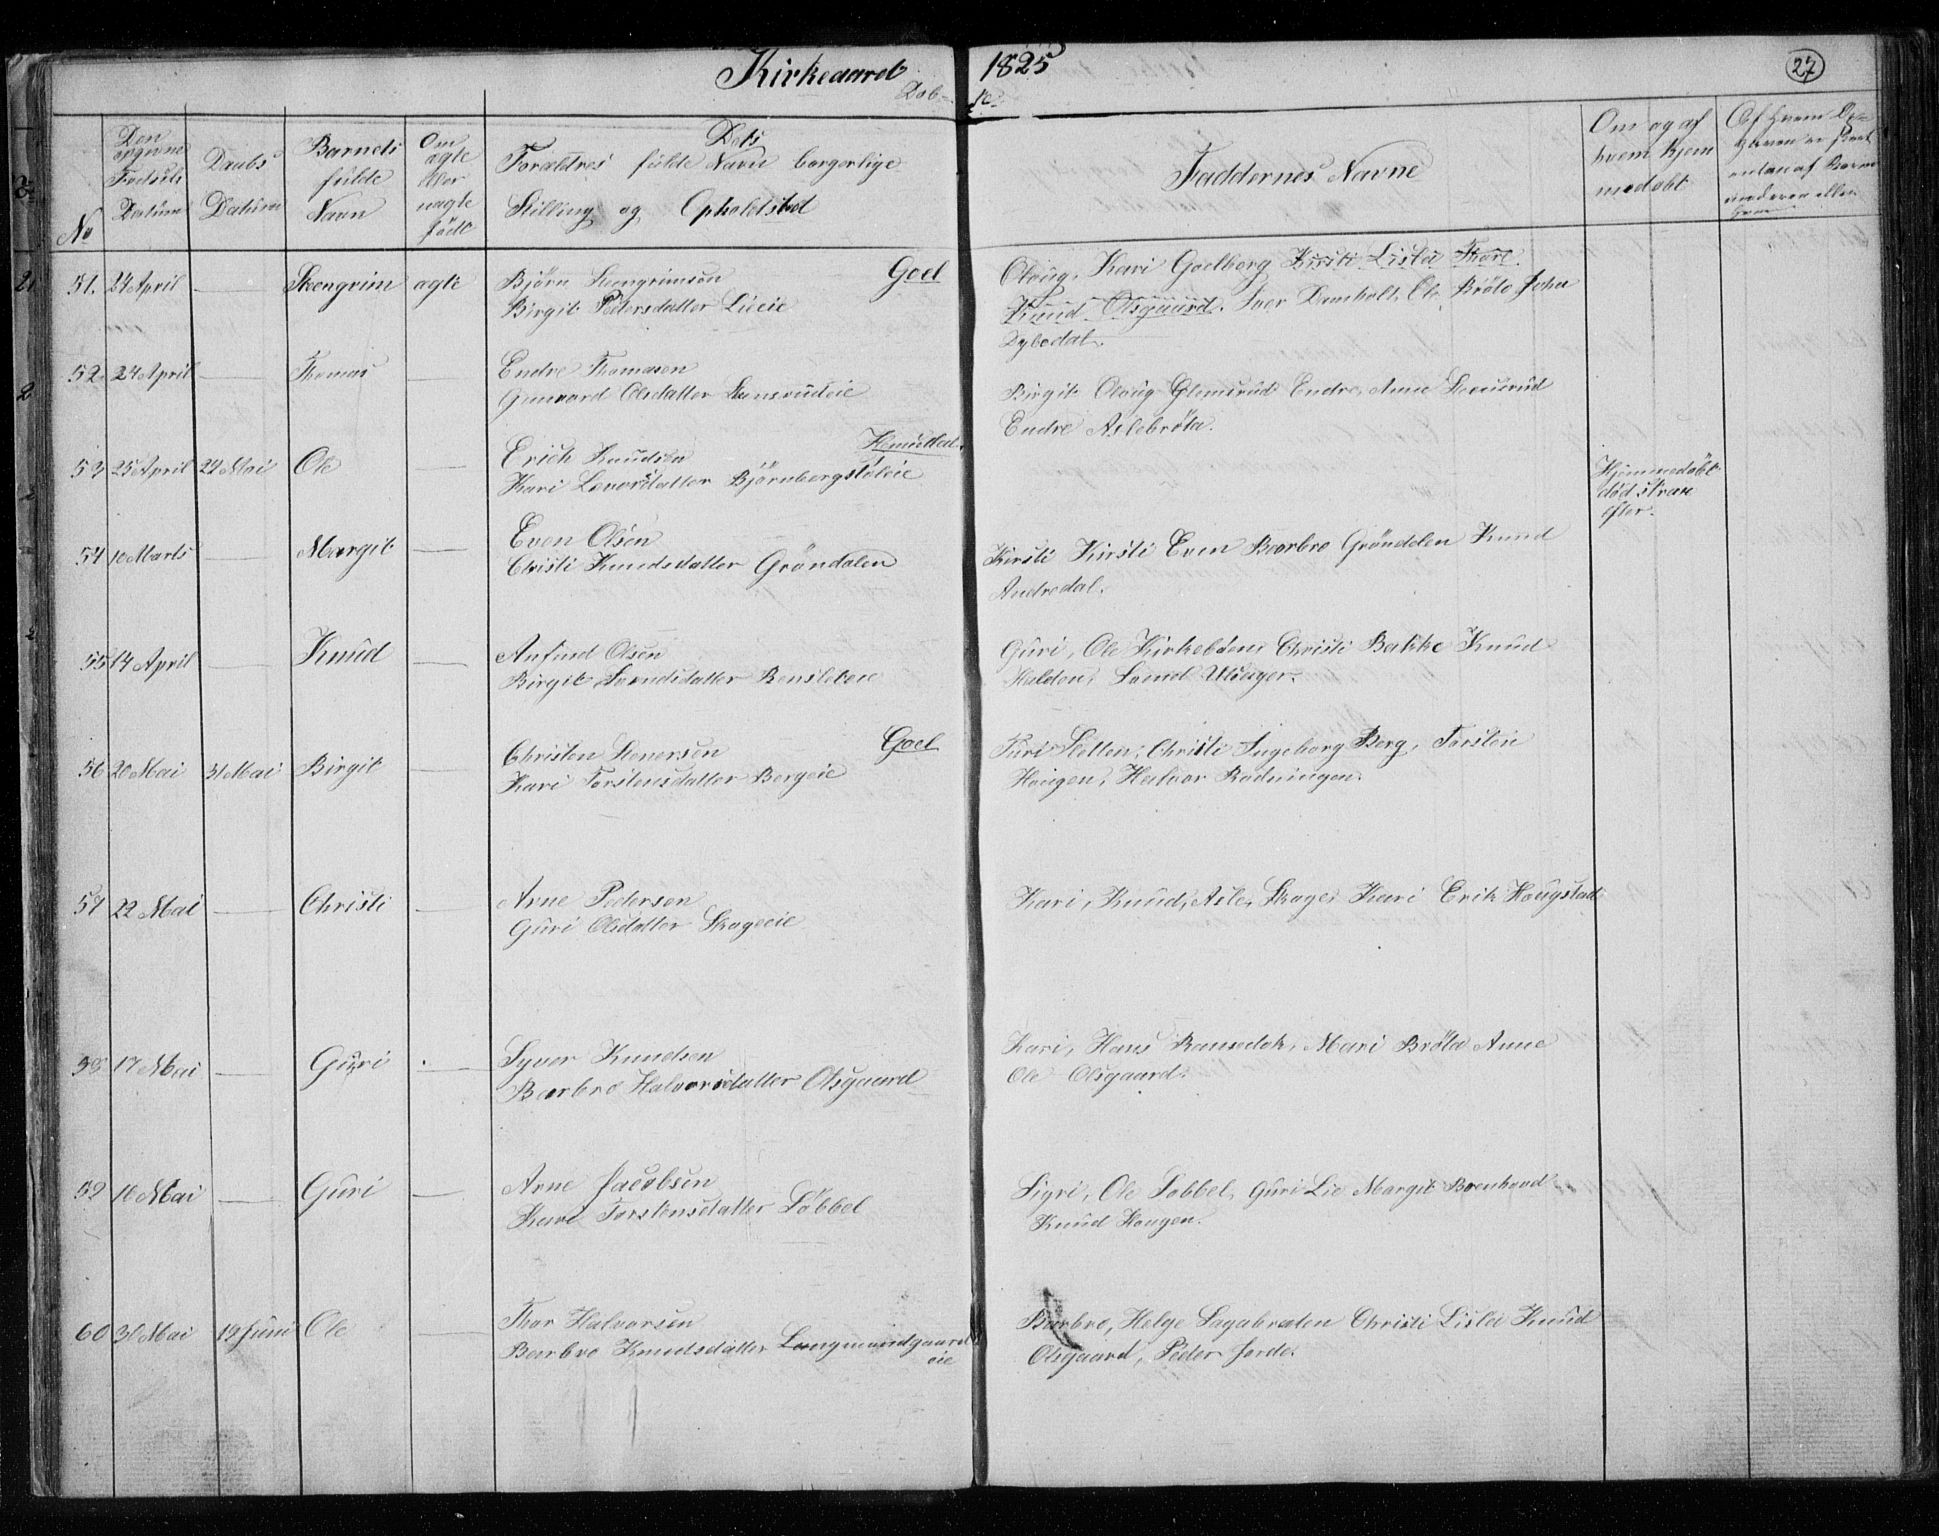 Kirkeaaret 1825
27
Daab
No
Den opgivne Fødsels Datum
Daabs Datum
Barnets fulde Navn
Om ægte eller uægte født
Dets Forældres fulde Navn borgerlige Stilling og Opholdsted
Faddernes Navne
Om og af hvem hjemmedøbt
51. 24 April — Steengrim ægte Bjørn Steengrimsøn Goel
Birgit Pedersdatter Lieeie
Olaug, Kari Goelberg Kirsti Lislei Thore
Knud Olsgaard. Iver Damholt, Ole Brøto John
Dybedal.
52 24 April — Thomas — Endre Thomasøn
Gunvord Olsdatter
Birgit Olaug Glemsrud Endre, Anne
Endre Aslebrøta.
53 25 April 24 Mai Ole — Erich Knudsøn
Kari Bjørnbergstøleie
Hjemmedøbt
død strax
efter.
54 10 Marts — Margit — Even Olsøn
Christi Knudsdatter Grøndalen
Kirsti Kirsti Even Barbro Grøndelen Knud
55 14 April — Knud — Anfind Olsøn
Birgit Svendsdatter
Guri, Ole Christi Bakke Knud
Halden,
56 20 Mai 31 Mai Birgit — Christen Goel
Kari Torstensdatter Bergeie
Turi Sletten, Christi Ingeborg Berg, Torsten
Haugen, Halvor Rødningen.
57 22 Mai — Christi — Arne Pedersøn
Guri Olsdatter Skageeie
Kari, Knud, Asle, Skage, Kari Erik Haugstad
58 17 Mai — Guri — Syver Knudsen
Barbro Halvorsdatter Olsgaard
Kari, Hans Mari Brøta Anne
Ole Olsgaard.
59 16 Mai — Guri — Arne Jacobsøn
Kari Torstensdatter Søbbel
Sigri, Ole Søbbel, Guri Lie Margit
Knud Haugen.
60 30 Mai 12 Juni Ole — Thor Halvorsen
Barbro Knudsdatter
eie
Barbro, Helge Sagabraten Christi Lislei Knud
Olsgaard, Peder Jorde.